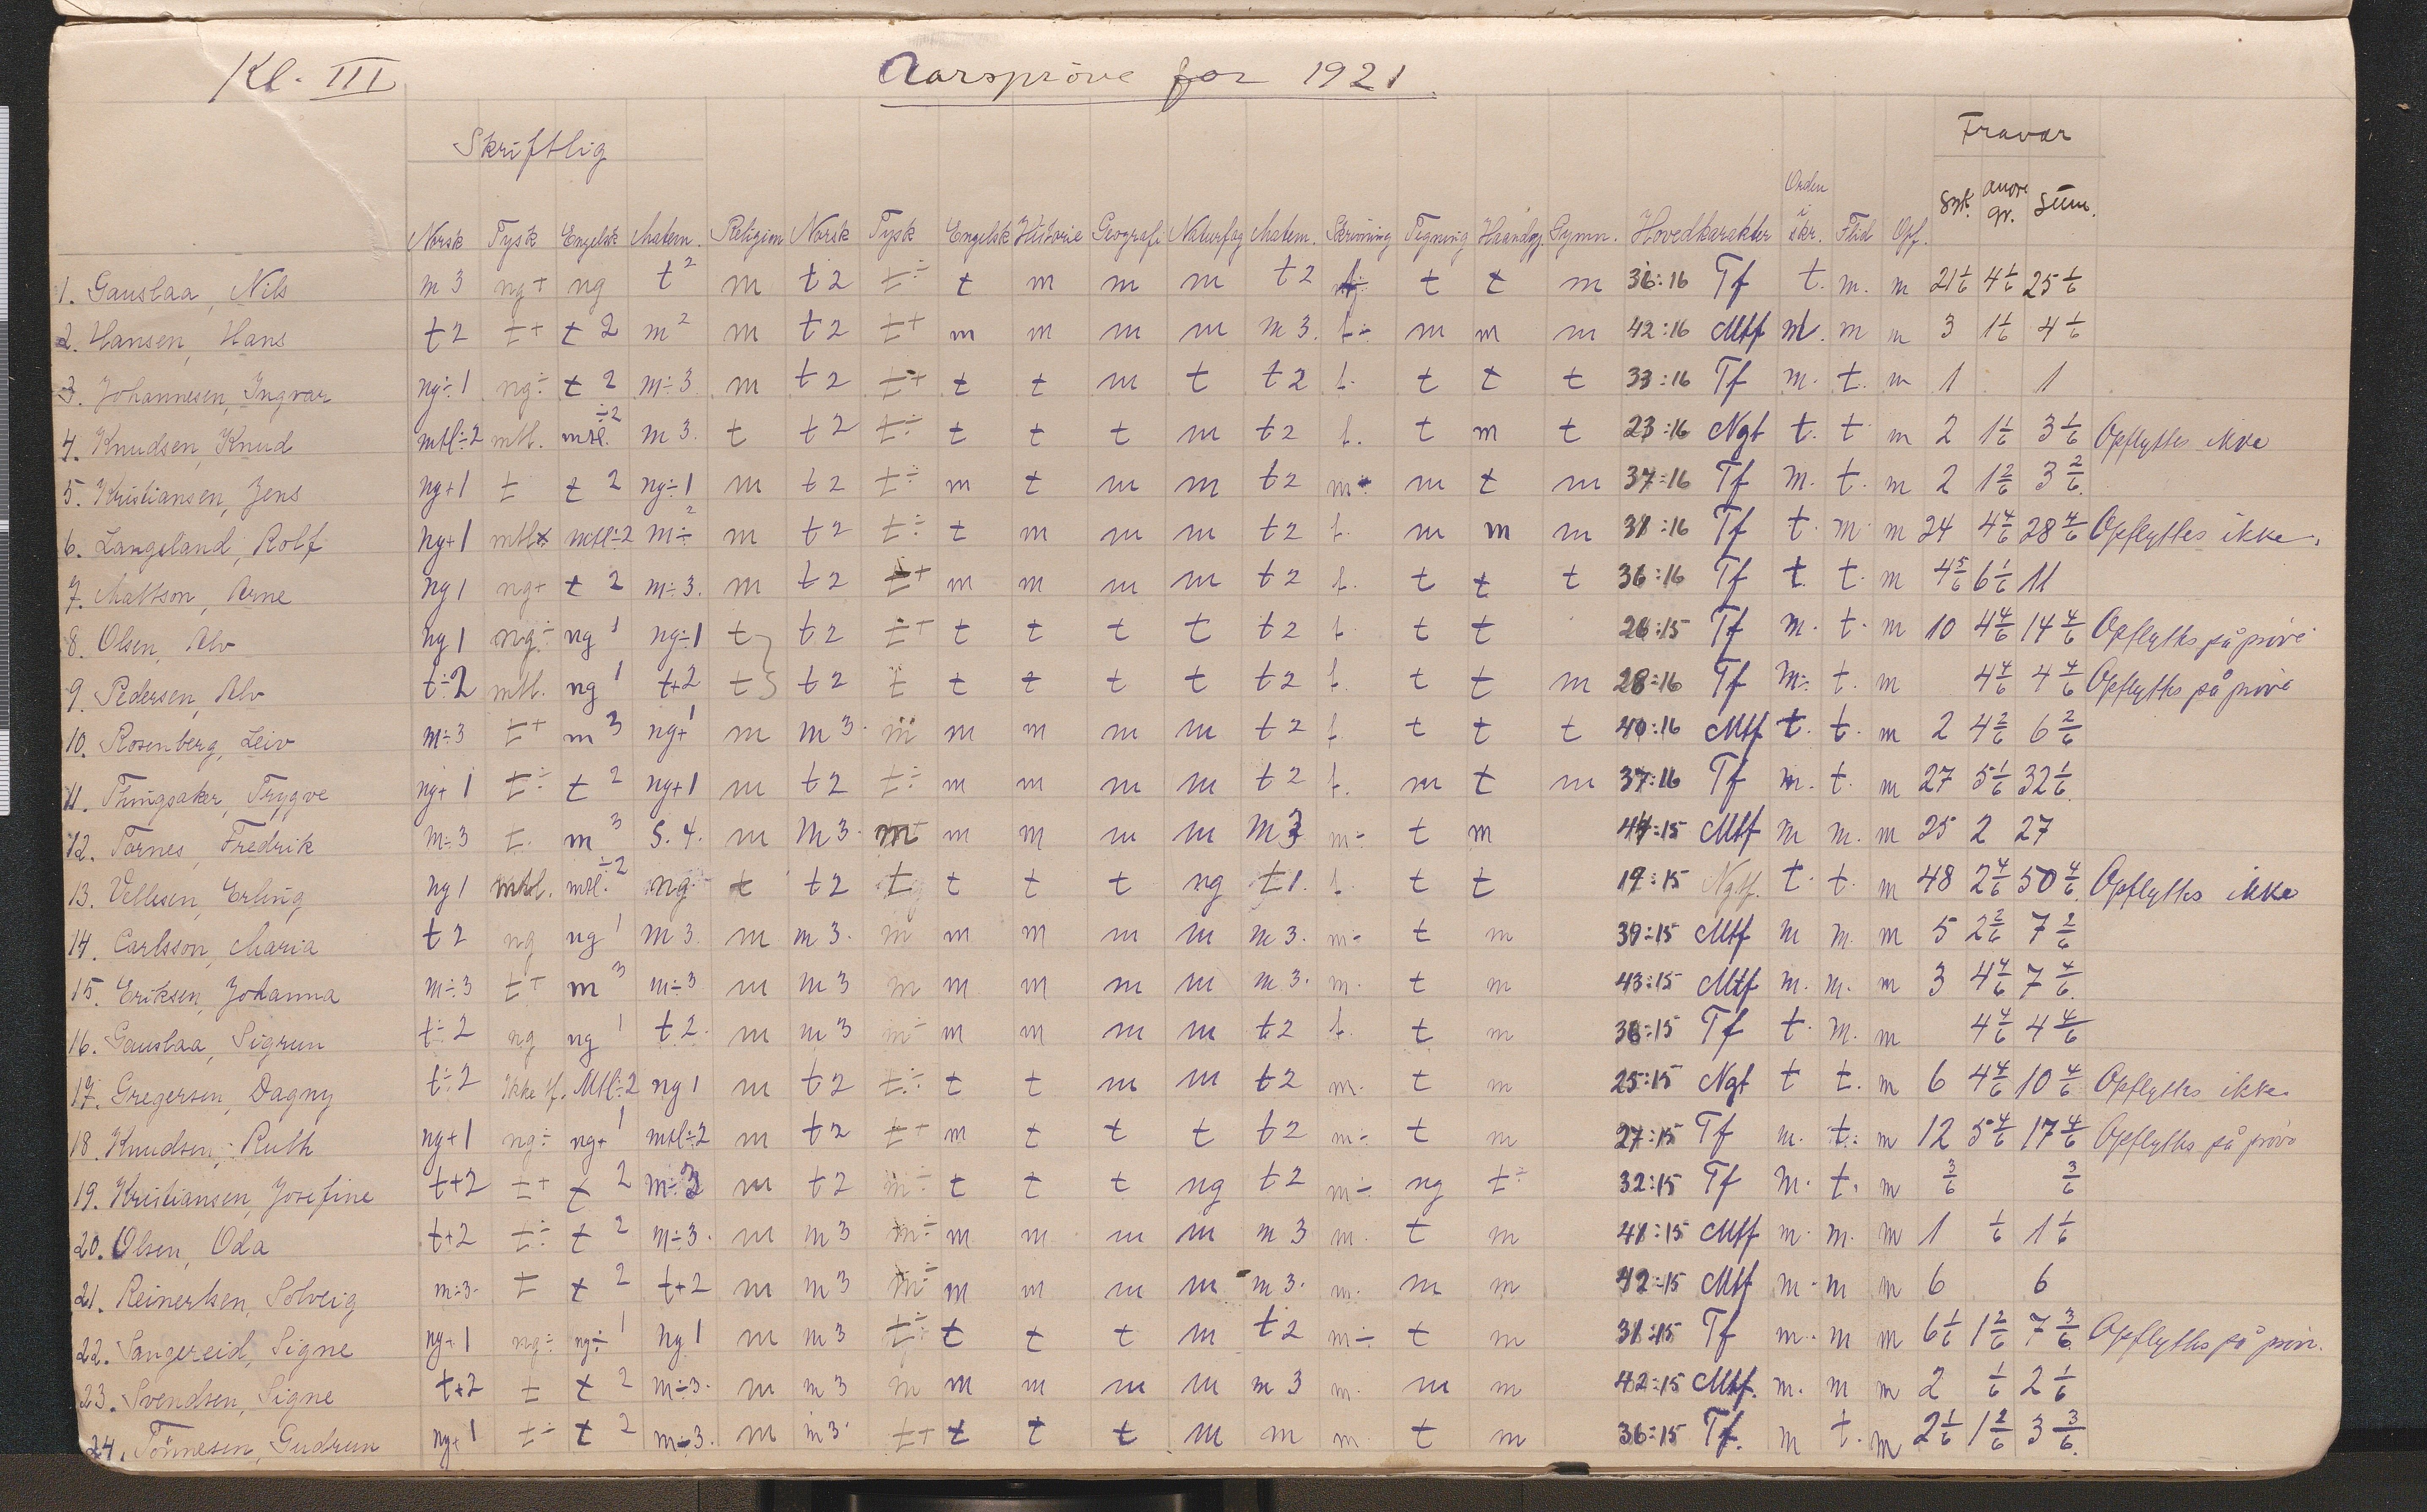 Kl. III Aarsprøve for 1921.
Skriftlig Fravær
Norsk Tysk Engelsk Matem. Religion Norsk Tysk Engelsk Historie Geografi Naturfag Matem. Skrivning Tegning Haandgj. Gymn. Hovedkarakter Orden i skr. Flid Opf. Syk. andre gr. Sum.
1. Gauslaa, Nils m 3 ng+ ng t 2 m t 2 t÷ t m m m t 2 t t m 36:16 Tf t. m. m 21 1/6 4 1/6 25 1/6
2. Hansen, Hans t 2 t+ t 2 m 2 m t 2 t+ m m m m m 3. t÷ m m m 42:16 Mtf m. m m 3 1 1/6 4 1/6
3. Johannesen, Ingvar ng÷1 ng÷ t 2 m÷3 m t 2 t+ t t m t t 2 t. t t t 33:16 Tf m. t. m 1 1
4. Knudsen, Knud mtl÷2 mtl. mtl.÷2 m 3. t t 2 t÷ t t t m t 2 t. t m t 23:16 Ngt t. t. m 2 1 1/6 3 1/6 Opflyttes ikke
5. Kristiansen, Jens ng+1 t t 2 ng÷1 m t 2 t÷ m t m m t 2 m÷ m t m 37:16 Tf m. t. m 2 1 2/6 3 2/6
6. Langeland, Rolf ng+1 mtl mtl÷2 m÷2 m t 2 t÷ t m m m t 2 t. m m m 38:16 Tf t. m. m 24 4 4/6 28 4/6 Opflyttes ikke.
7. Mattson, Arne ng 1 ng+ t 2 m÷3. m t 2 t+ m m m m t 2 t. t t t 36:16 Tf t. t. m 4 5/6 6 1/6 11
8. Olsen, Alv ng 1 ng÷ ng 1 ng÷1 t t 2 t+ t t t t t 2 t. t t 26:15 Tf m. t. m 10 4 4/6 14 4/6 Opflyttes på prøve
9. Pedersen, Alv t÷2 mtl. ng 1 t+2 t t 2 t t t t t t 2 t. t t m 28:16 Tf m÷ t. m 4 4/6 4 4/6 Opflyttes på prøve
10. Rosenberg, Leiv m÷3 t+ m 3 ng+1 m m 3. m m m m m t 2 t t t t 40:16 Mtf t. t. m 2 4 2/6 6 2/6
11. Tingsaker, Trygve ng+1 t÷ t 2 ng+1 m t 2 t÷ m m m m t 2 t. m t m 37:16 Tf m. t. m 27 5 1/6 32 1/6
12. Tornes, Fredrik m÷3 t. m 3 S. 4. m m 3. m+ m m m m m 3 m÷ t m 44:15 Mtf m m. m 25 2 27
13. Vellesen, Erling ng 1 mtl. mtl.÷2 ng t t 2 t t t t ng t 1. t. t t 19:15 Ngtf. t. t. m 48 2 4/6 50 4/6 Opflyttes ikke
14. Carlsson, Maria t 2 ng ng 1 m 3. m m 3. m m m m m m 3. m÷ t m 39:15 Mtf m m. m 5 2 2/6 7 2/6
15. Eriksen, Johanna m÷3 t+ m 3 m÷3 m m 3 m m m m m m 3. m. t m 43:15 Mtf m. m. m 3 4 4/6 7 4/6
16. Gauslaa, Sigrun t÷2 ng ng 1 t 2. m m 3 m÷ m m m m t 2 t. t m 36:15 Tf t. m. m 4 4/6 4 4/6
17. Gregersen, Dagny t÷2 Ikke tf. Mtl÷2 ng 1 m t 2 t÷ t t m m t 2 m. t m 25:15 Ngt t t. m 6 4 4/6 10 4/6 Opflyttes ikke.
18. Knudsen, Ruth ng+1 ng÷ ng+1 mtl÷2 m t 2 t+ m t t t t 2 m÷ t m 27:15 Tf m. t. m 12 5 4/6 17 4/6 Opflyttes på prøve
19. Kristiansen, Josefine t+2 t+ t 2 m÷3 m t 2 m÷ t t t ng t 2 m÷ ng t÷ 32:15 Tf m. t. m 3/6 3/6
20. Olsen, Oda t+2 t÷ t 2 m÷3. m m 3 m÷ m m m m m 3 m. t m 41:15 Mtf m. m. m 1 1/6 1 1/6
21. Reinertsen, Solveig m÷3. t t 2 t+2 m m 3 m÷ m m m m m 3. m. m m 42:15 Mtf m. m m 6 6
22. Sangereid, Signe ng+1 ng÷ ng÷1 ng 1 m m 3 t÷ t t t m t 2 m÷ t m 31:15 Tf m. m m 6 1/6 1 2/6 7 3/6 Opflyttes på prøv.
23. Svendsen, Signe t+2 t t 2 m÷3. m m 3 m m m m m m 3 m. m m 42:15 Mtf. m. m m 2 1/6 2 1/6
24. Tönnesen, Gudrun ng+1 t÷ t 2 m÷3. m m 3. t+ t t t m m m t m 36:15 Tf. m t. m 2 1/6 1 2/6 3 3/6